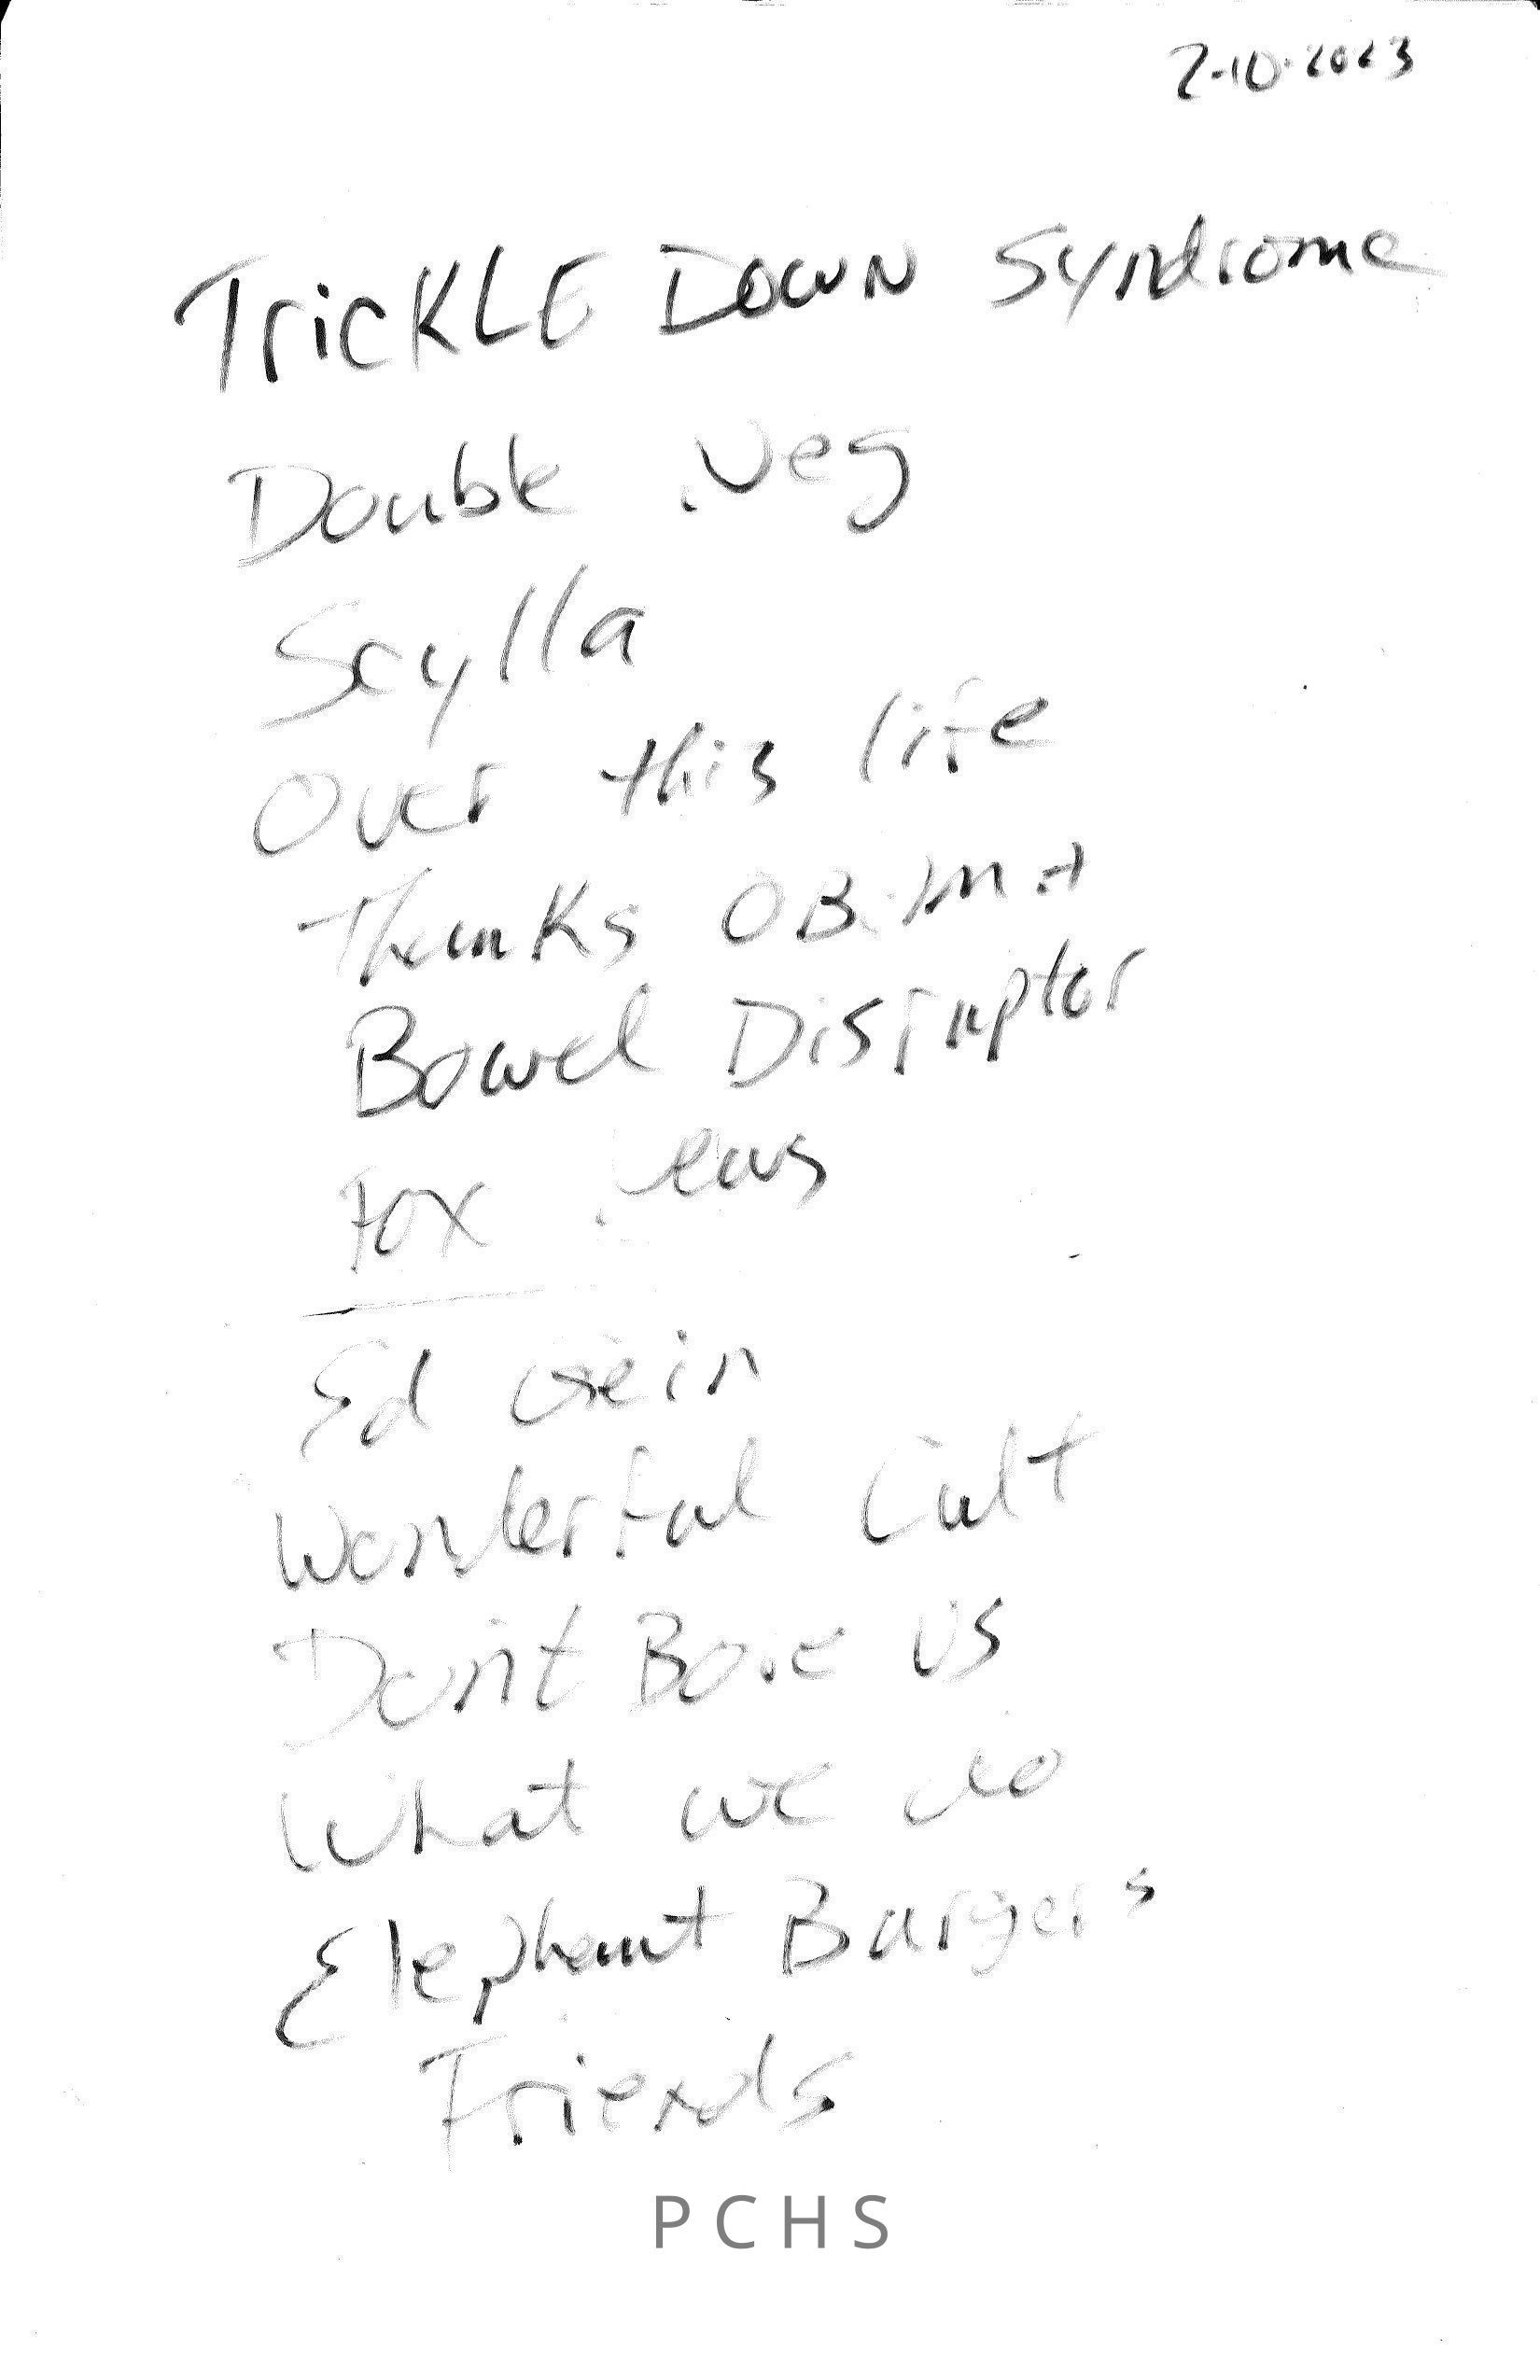 2-10-2023
TricKLE DOWN Syndrome
Double Neg
Scylla
Over this life
Thanks OBama
Bowel Disruptor
Fox News
Ed Gein
Wonderful Cult
Don't Bore US
What we do
Elephant Burgers
Friends
PCHS